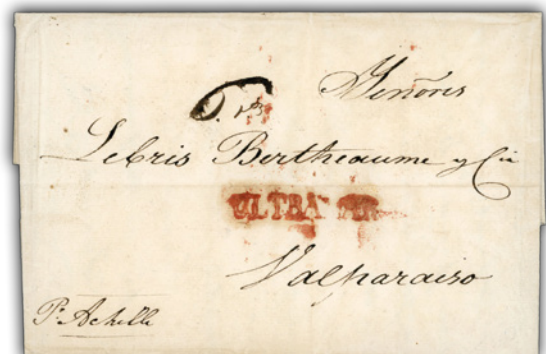 Señores
Lebris Bertheaume y Cia
ULTRA MAR
Valparaiso
Pr. Achille